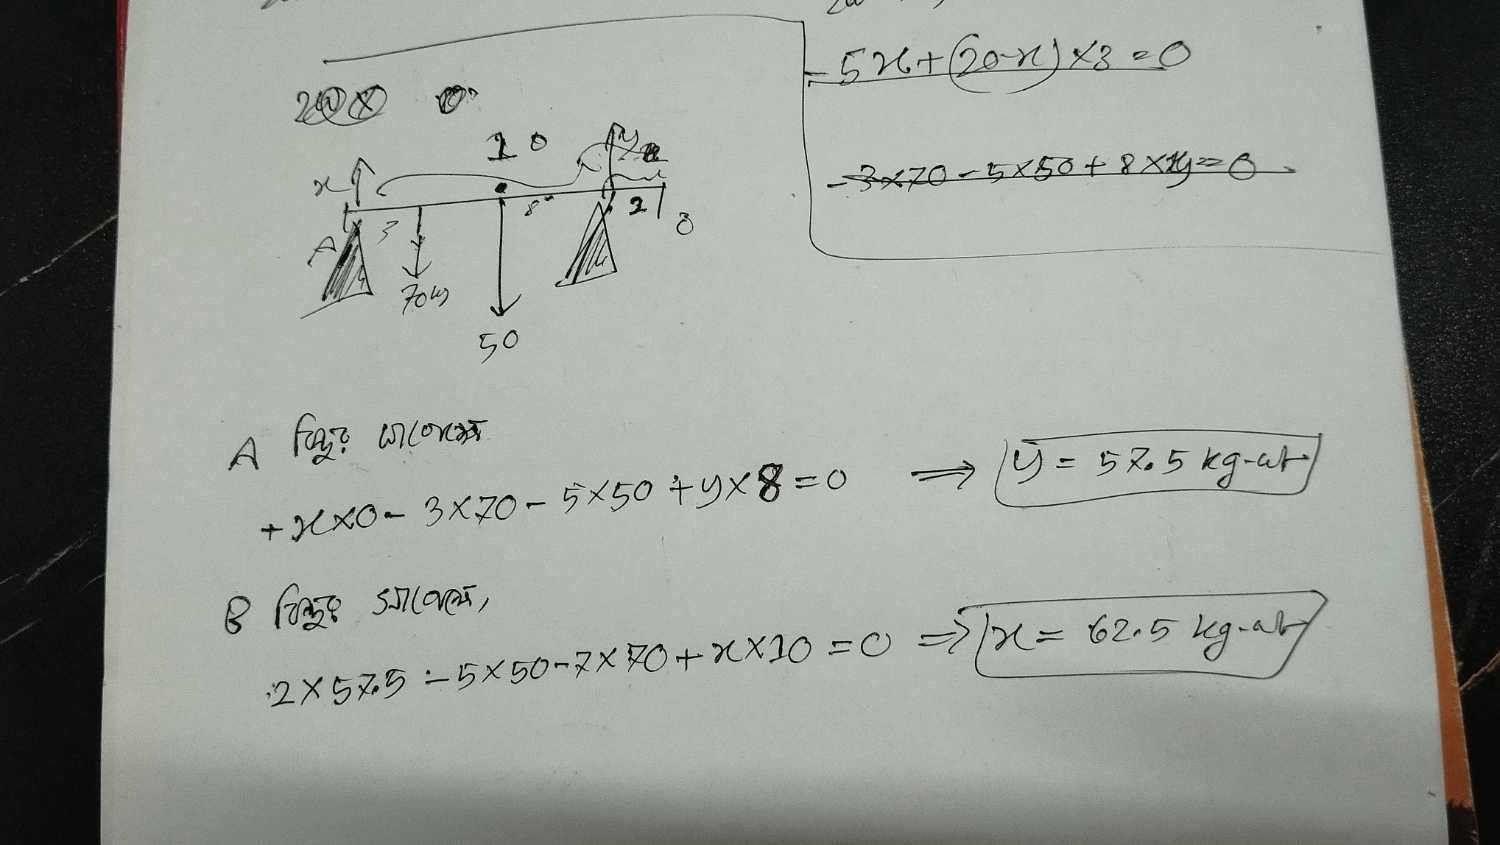 - 5x + (20-x) × 3 = 0
- 3×70 - 5×50 + 8×y = 0
10
y
x
A
3
8
2
70
50
A বিন্দুর সাপেক্ষে
+ x×0 - 3×70 - 5×50 + y×8 = 0 ⇒ y = 57.5 kg-wt
B বিন্দুর সাপেক্ষে,
2×57.5 - 5×50 - 7×70 + x×10 = 0 ⇒ x = 62.5 kg-wt